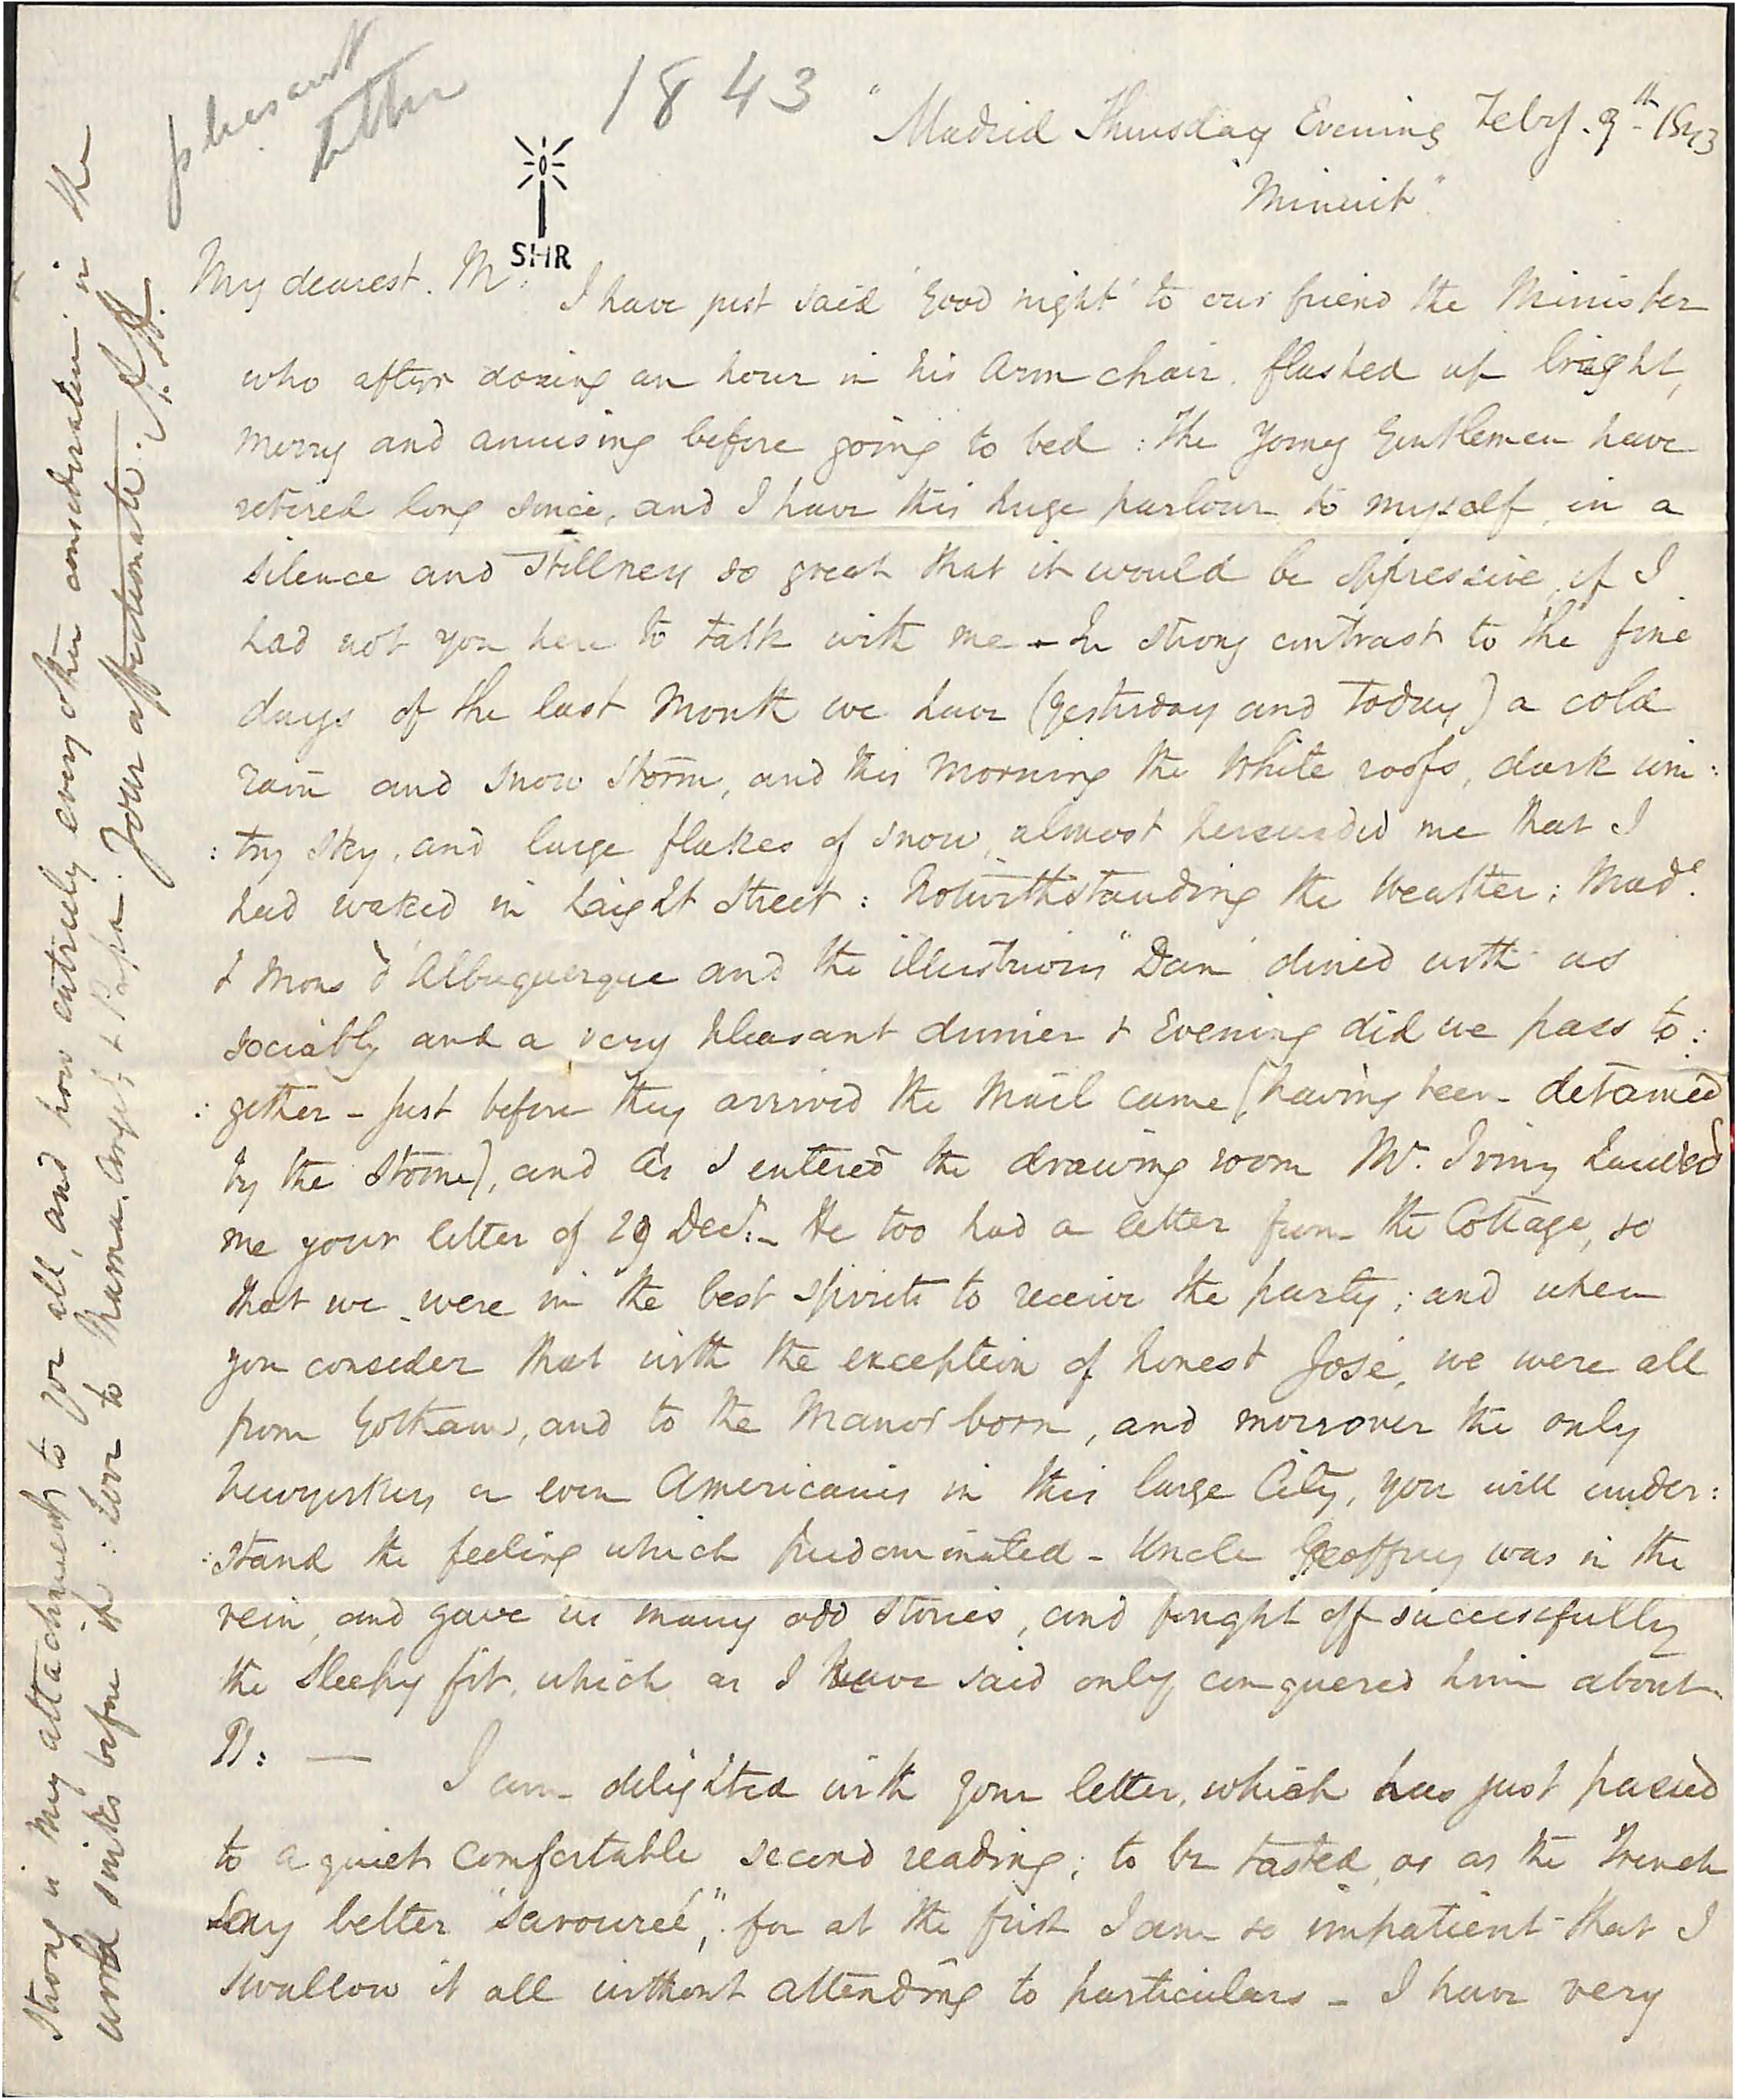 pleasant
letter
1843
SHR
"Madrid Thursday Evening Feby. 9th 1843
"Minuit"
My dearest. M: I have just said 'Good night' to our friend the Minister
who after dozing an hour in his Arm chair, flashed up bright,
merry and amusing before going to bed : The Young Gentlemen have
retired long since, and I have this huge parlour to myself, in a
silence and stillness so great that it would be oppressive, if I
had not you here to talk with me - In strong contrast to the fine
days of the last Month we have (yesterday and today) a cold
rain and snow storm, and this morning the White roofs, dark win:
:try sky, and large flakes of snow, almost persuaded me that I
had waked in Laight Street : Notwithstanding the Weather; Made.
& Mons d'Albuquerque and the illustrious "Dan" dined with us
sociably and a very pleasant dinner & Evening did we pass to:
:gether - Just before they arrived the Mail came (having been detained
by the storm), and as I entered the drawing room Mr. Irving handed
me your letter of 29 Decr: - He too had a letter from the Cottage, so
that we were in the best spirits to receive the party; and when
you consider that with the exception of honest José, we were all
from Gotham, and to the Manor born, and moreover the only
Newyorkers or even Americans in this large City, you will under:
:stand the feeling which predominated - Uncle Geoffrey was in the
vein, and gave us many odd stories, and fought off successfully
the sleepy fit, which as I have said only conquered him about
11: — I am delighted with your letter, which has just passed
to a quiet comfortable second reading; to be tasted, or as the French
say better "savouré", for at the first I am so impatient that I
swallow it all without attending to particulars - I have very
strong is my attachment to you all, and how entirely every other consideration in the
world sinks before it : Love to Mama, & Papa. Your affectionate.